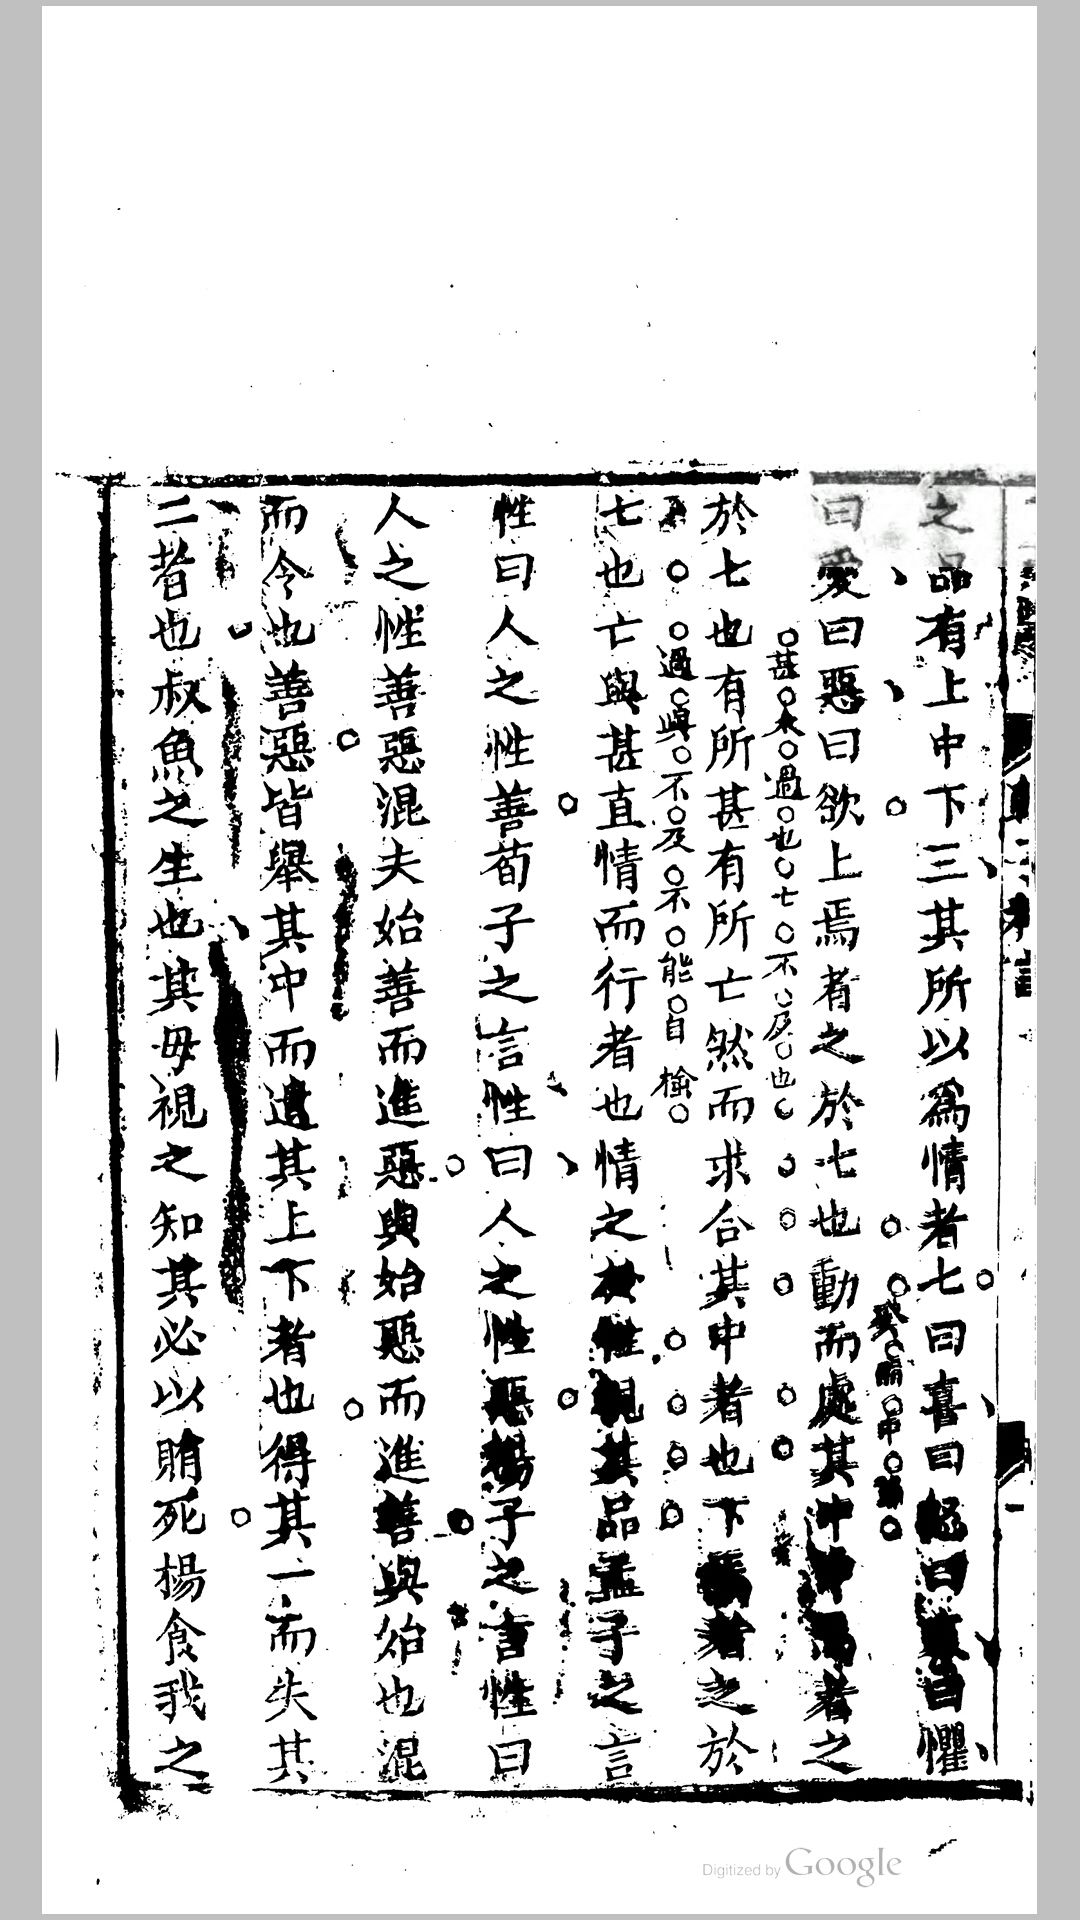 之品有上中下三其所以爲情者七曰喜曰怒曰哀曰懼
曰愛曰惡曰欲上焉者之於七也動而處其中中焉者之
發而中
甚來過也七不及也
於七也有所甚有所亡然而求合其中者也下焉者之於
過與不及不能自檢
七也亡與甚直情而行者也情之於性視其品孟子之言
性曰人之性善荀子之言性曰人之性惡楊子之言性曰
人之性善惡混夫始善而進惡與始惡而進善與始也混
而今也善惡皆舉其中而遺其上下者也得其一而失其
二者也叔魚之生也其母視之知其必以賄死楊食我之
Digitized by Google